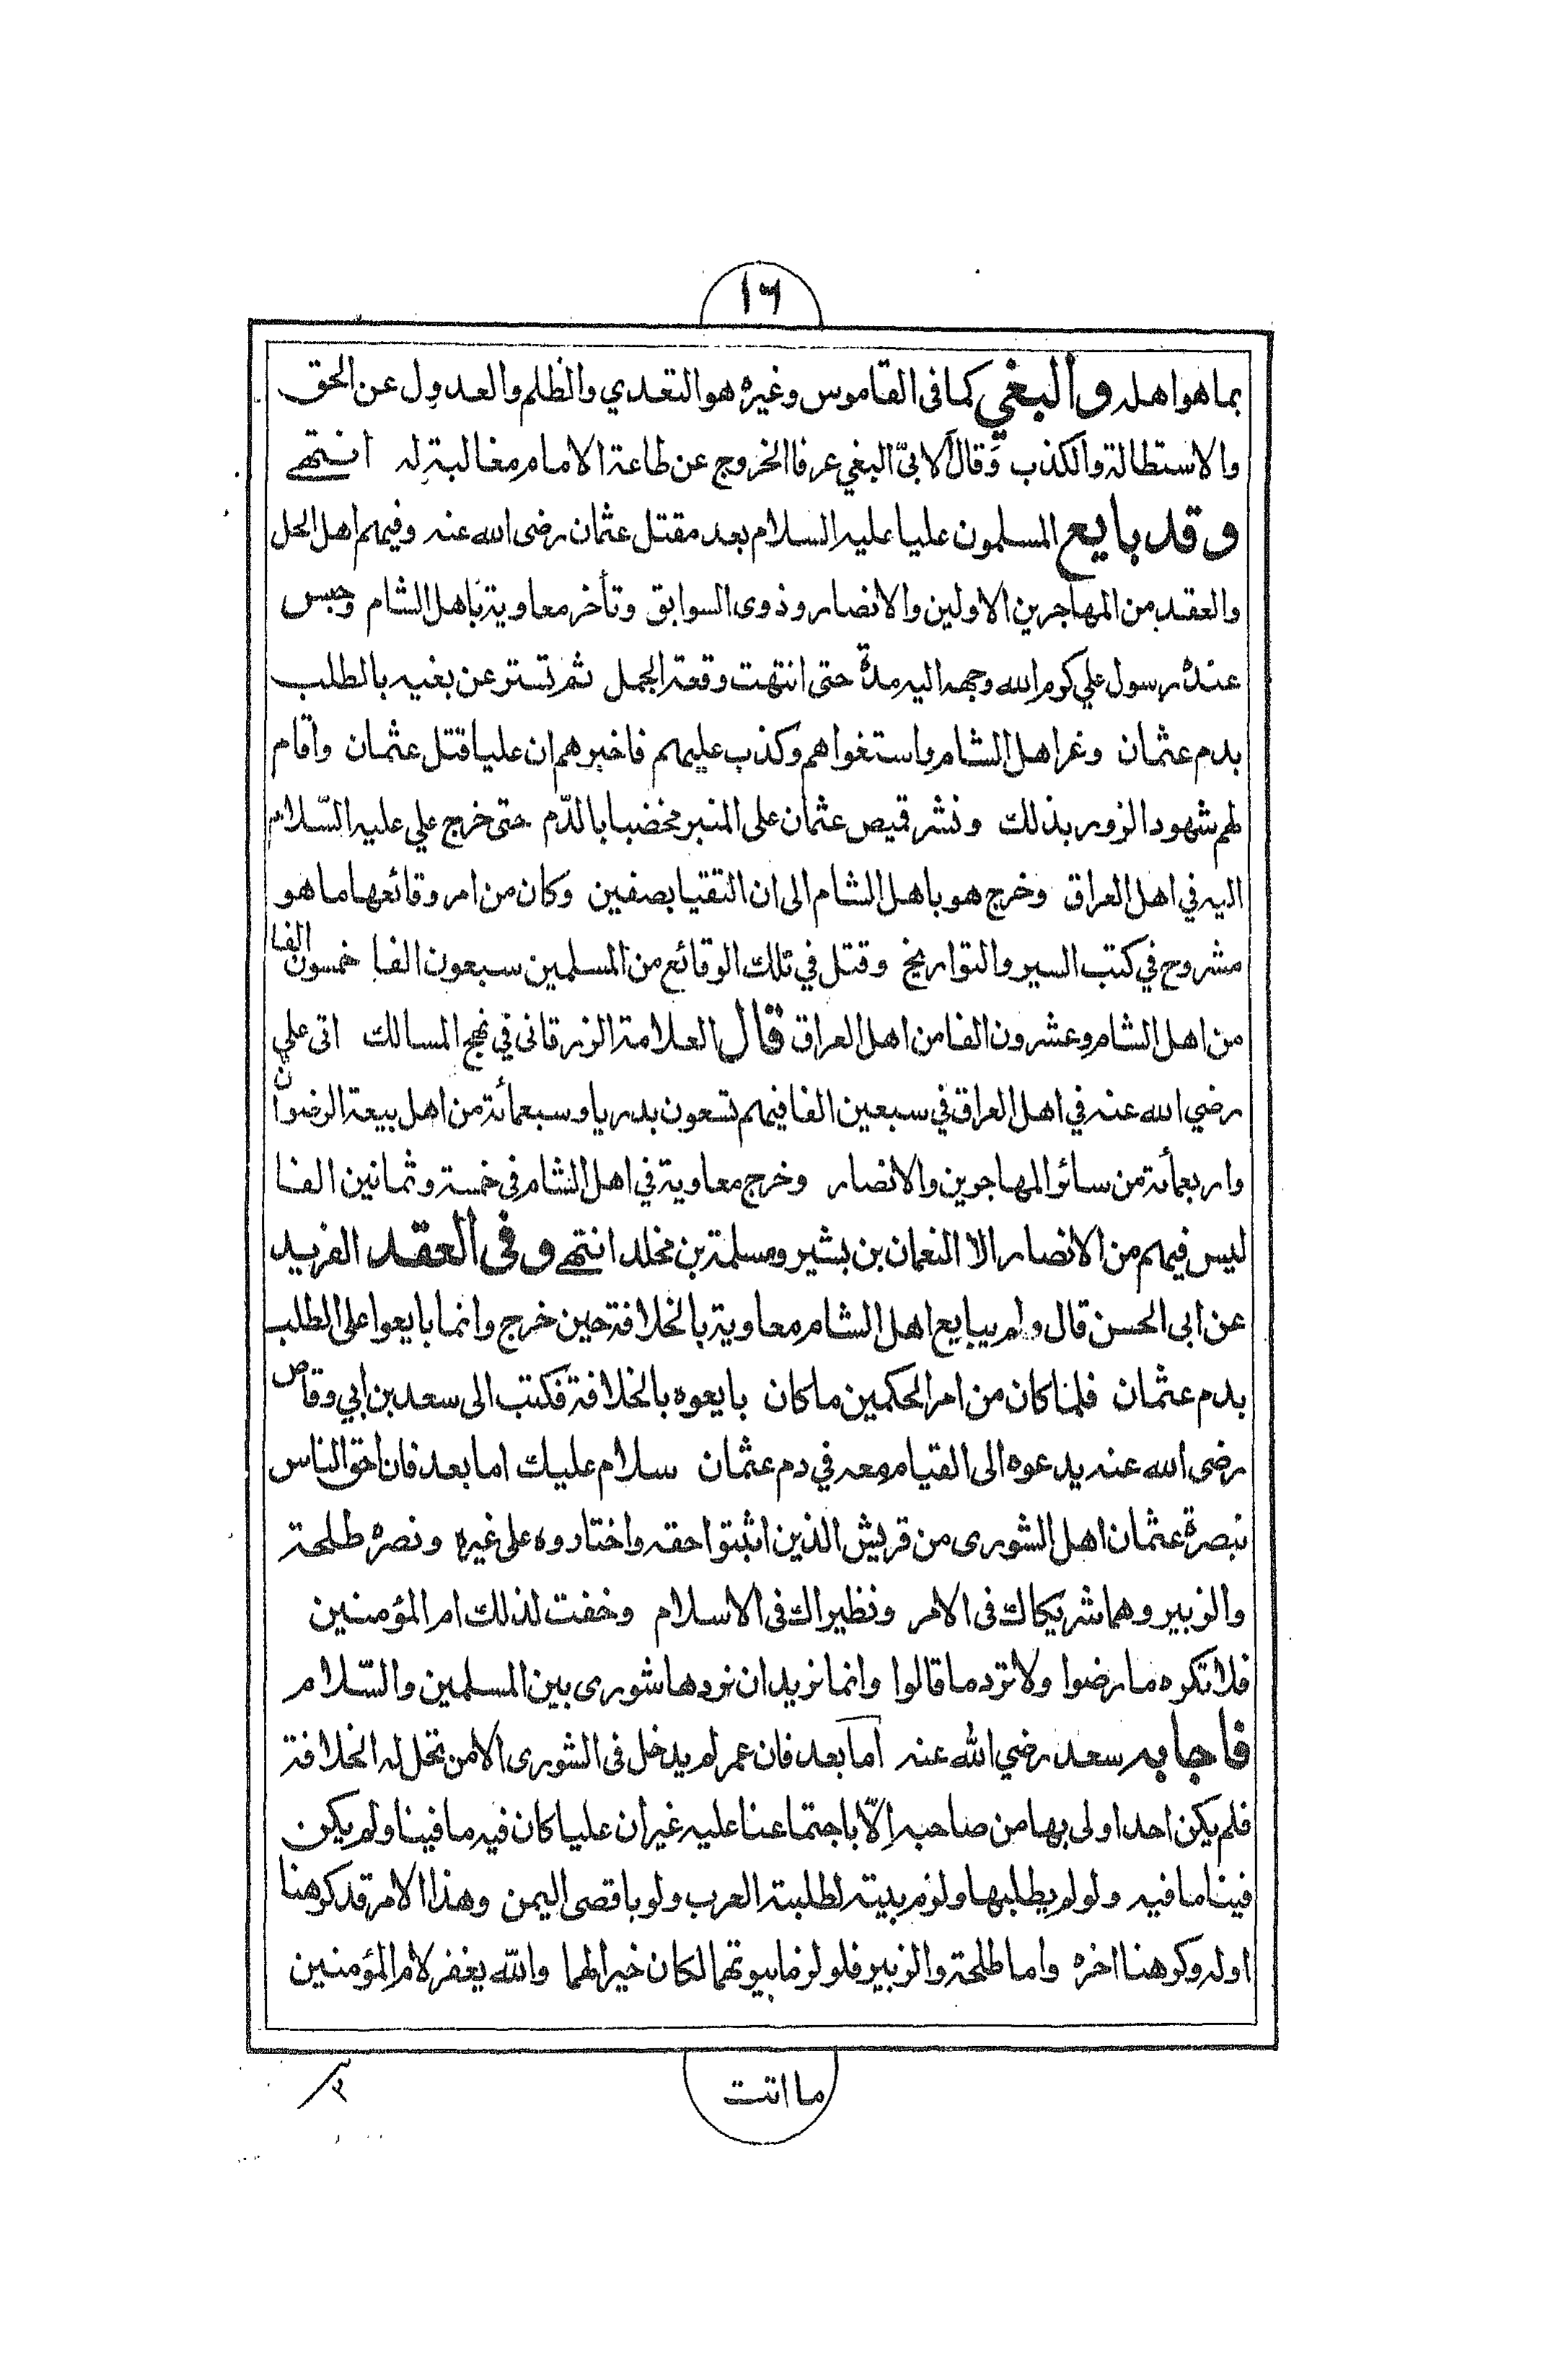 ١٦
بما هو اهله والبغي كما فى القاموس وغيره هو التعدي والظلم والعدول عن الحق
والاستطالة والكذب وَّقال الابيّ البغي عرفا الخروج عن طاعة الامام مغالبة له انتهے
وقد بايع المسلمون عليا عليه السلام بعد مقتل عثمان رضى الله عنه وفيهم اهل الحل
والعقد من المهاجرين الاولين والانصار وذوى السوابق وتأخر معاوية باهل الشام وحبس
عنده رسول علي كرم الله وجهه اليه مدة حتى انتهت وقعة الجمل ثم تستر عن بغيه بالطلب
بدم عثمان وغر اهل الشام واستغواهم وكذب عليهم فاخبرهم ان عليا قتل عثمان واقام
لهم شهود الزور بذلك ونشر قميص عثمان على المنبر مخضبا بالدّم حتى خرج علي عليه السّلام
اليه في اهل العراق وخرج هو باهل الشام الى ان التقيا بصفين وكان من امر وقائعها ما هو
مشروح في كتب السير والتواريخ وقتل في تلك الوقائع من المسلمين سبعون الفا خمسون الفا
من اهل الشام وعشرون الفا من اهل العراق قال العلامة الزرقانى في نهج المسالك اتى علي
رضي الله عنه في اهل العراق في سبعين الفا فيهم تسعون بدريا وسبعمائة من اهل بيعة الرضوان
واربعمأئة من سائر المهاجرين والانصار وخرج معاوية في اهل الشام فى خمسة وثمانين الفا
ليس فيهم من الانصار الا النعمان بن بشير ومسلمة بن مخلد انتهے وفى العقد الفريد
عن ابى الحسن قال ولم يبايع اهل الشام معاوية بالخلافة حين خرج وانما بايعوا على الطلب
بدم عثمان فلما كان من امر الحكمين ما كان بايعوه بالخلافة فكتب الى سعد بن ابي وقاص
رضى الله عنه يدعوه الى القيام معه في دم عثمان سلام عليك اما بعد فان احق الناس
بنصرة عثمان اهل الشورى من قريش الذين اثبتوا حقه واختاروه على غيره ونصره طلحة
والزبير وهما شريكاك فى الامر ونظيراك فى الاسلام وخفت لذلك ام المؤمنين
فلا تكره ما رضوا ولا ترد ما قالوا وانما نريد ان نردها شورى بين المسلمين والسّلام
فاجابه سعد رضي الله عنه اما بعد فان عمر لم يدخل فى الشورى الا من تحل له الخلافة
فلم يكن احد اولى بها من صاحبه إلّا باجتماعنا عليه غير ان عليا كان فيه ما فينا ولم يكن
فينا ما فيه ولو لم يطلبها ولزم بيته لطلبته العرب ولو باقصى اليمن وهذا الامر قد كرهنا
اوله وكرهنا اخره واما طلحة والزبير فلو لزما بيوتهما لكان خيرا لهما والله يغفر لام المؤمنين
ما اتت
٣